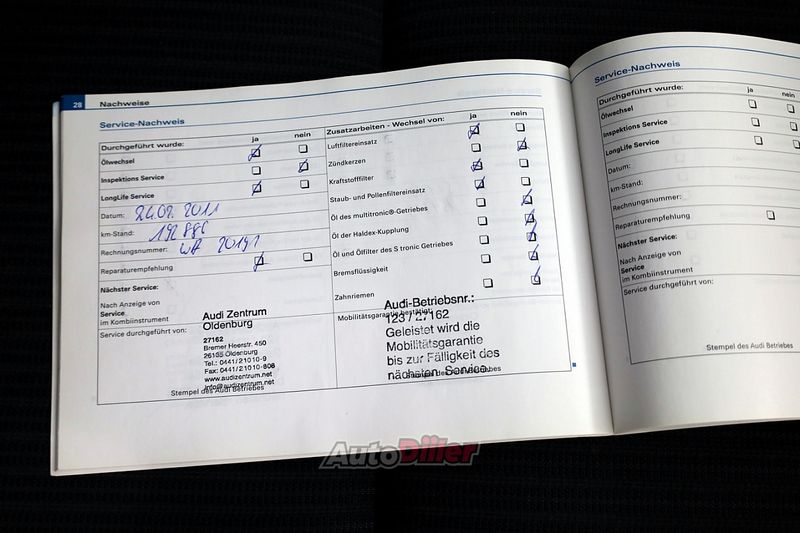 28 Nachweise
Service-Nachweis
Durchgeführt wurde: ja nein
Ölwechsel
Inspektions Service
LongLife Service
Datum: 24.02.2011
km-Stand: 192886
Rechnungsnummer:
Reparaturempfehlung
Nächster Service:
Nach Anzeige von
Service
im Kombiinstrument
Service durchgeführt von:
Audi Zentrum
Oldenburg
27162
Bremer Heerstr. 450
26135 Oldenburg
Tel.: 0441/21010-9
Fax: 0441/21010-806
www.audizentrum.net
info@audizentrum.net
Stempel des Audi Betriebes
Zusatzarbeiten - Wechsel von: ja nein
Luftfiltereinsatz
Zündkerzen
Kraftstofffilter
Staub- und Pollenfiltereinsatz
Öl des multitronic®-Getriebes
Öl der Haldex-Kupplung
Öl und Ölfilter des S tronic Getriebes
Bremsflüssigkeit
Zahnriemen
Mobilitätsgarantie bestätigt:
Audi-Betriebsnr.:
123 / 27162
Geleistet wird die
Mobilitätsgarantie
bis zur Fälligkeit des
nächsten Service.
Stempel des Audi Betriebes
Service-Nachweis
Durchgeführt wurde: ja nein
Ölwechsel
Inspektions Service
LongLife Service
Datum:
km-Stand:
Rechnungsnummer:
Reparaturempfehlung
Nächster Service:
Nach Anzeige von
Service
im Kombiinstrument
Service durchgeführt von:
Stempel des Audi Betriebes
AutoDiler